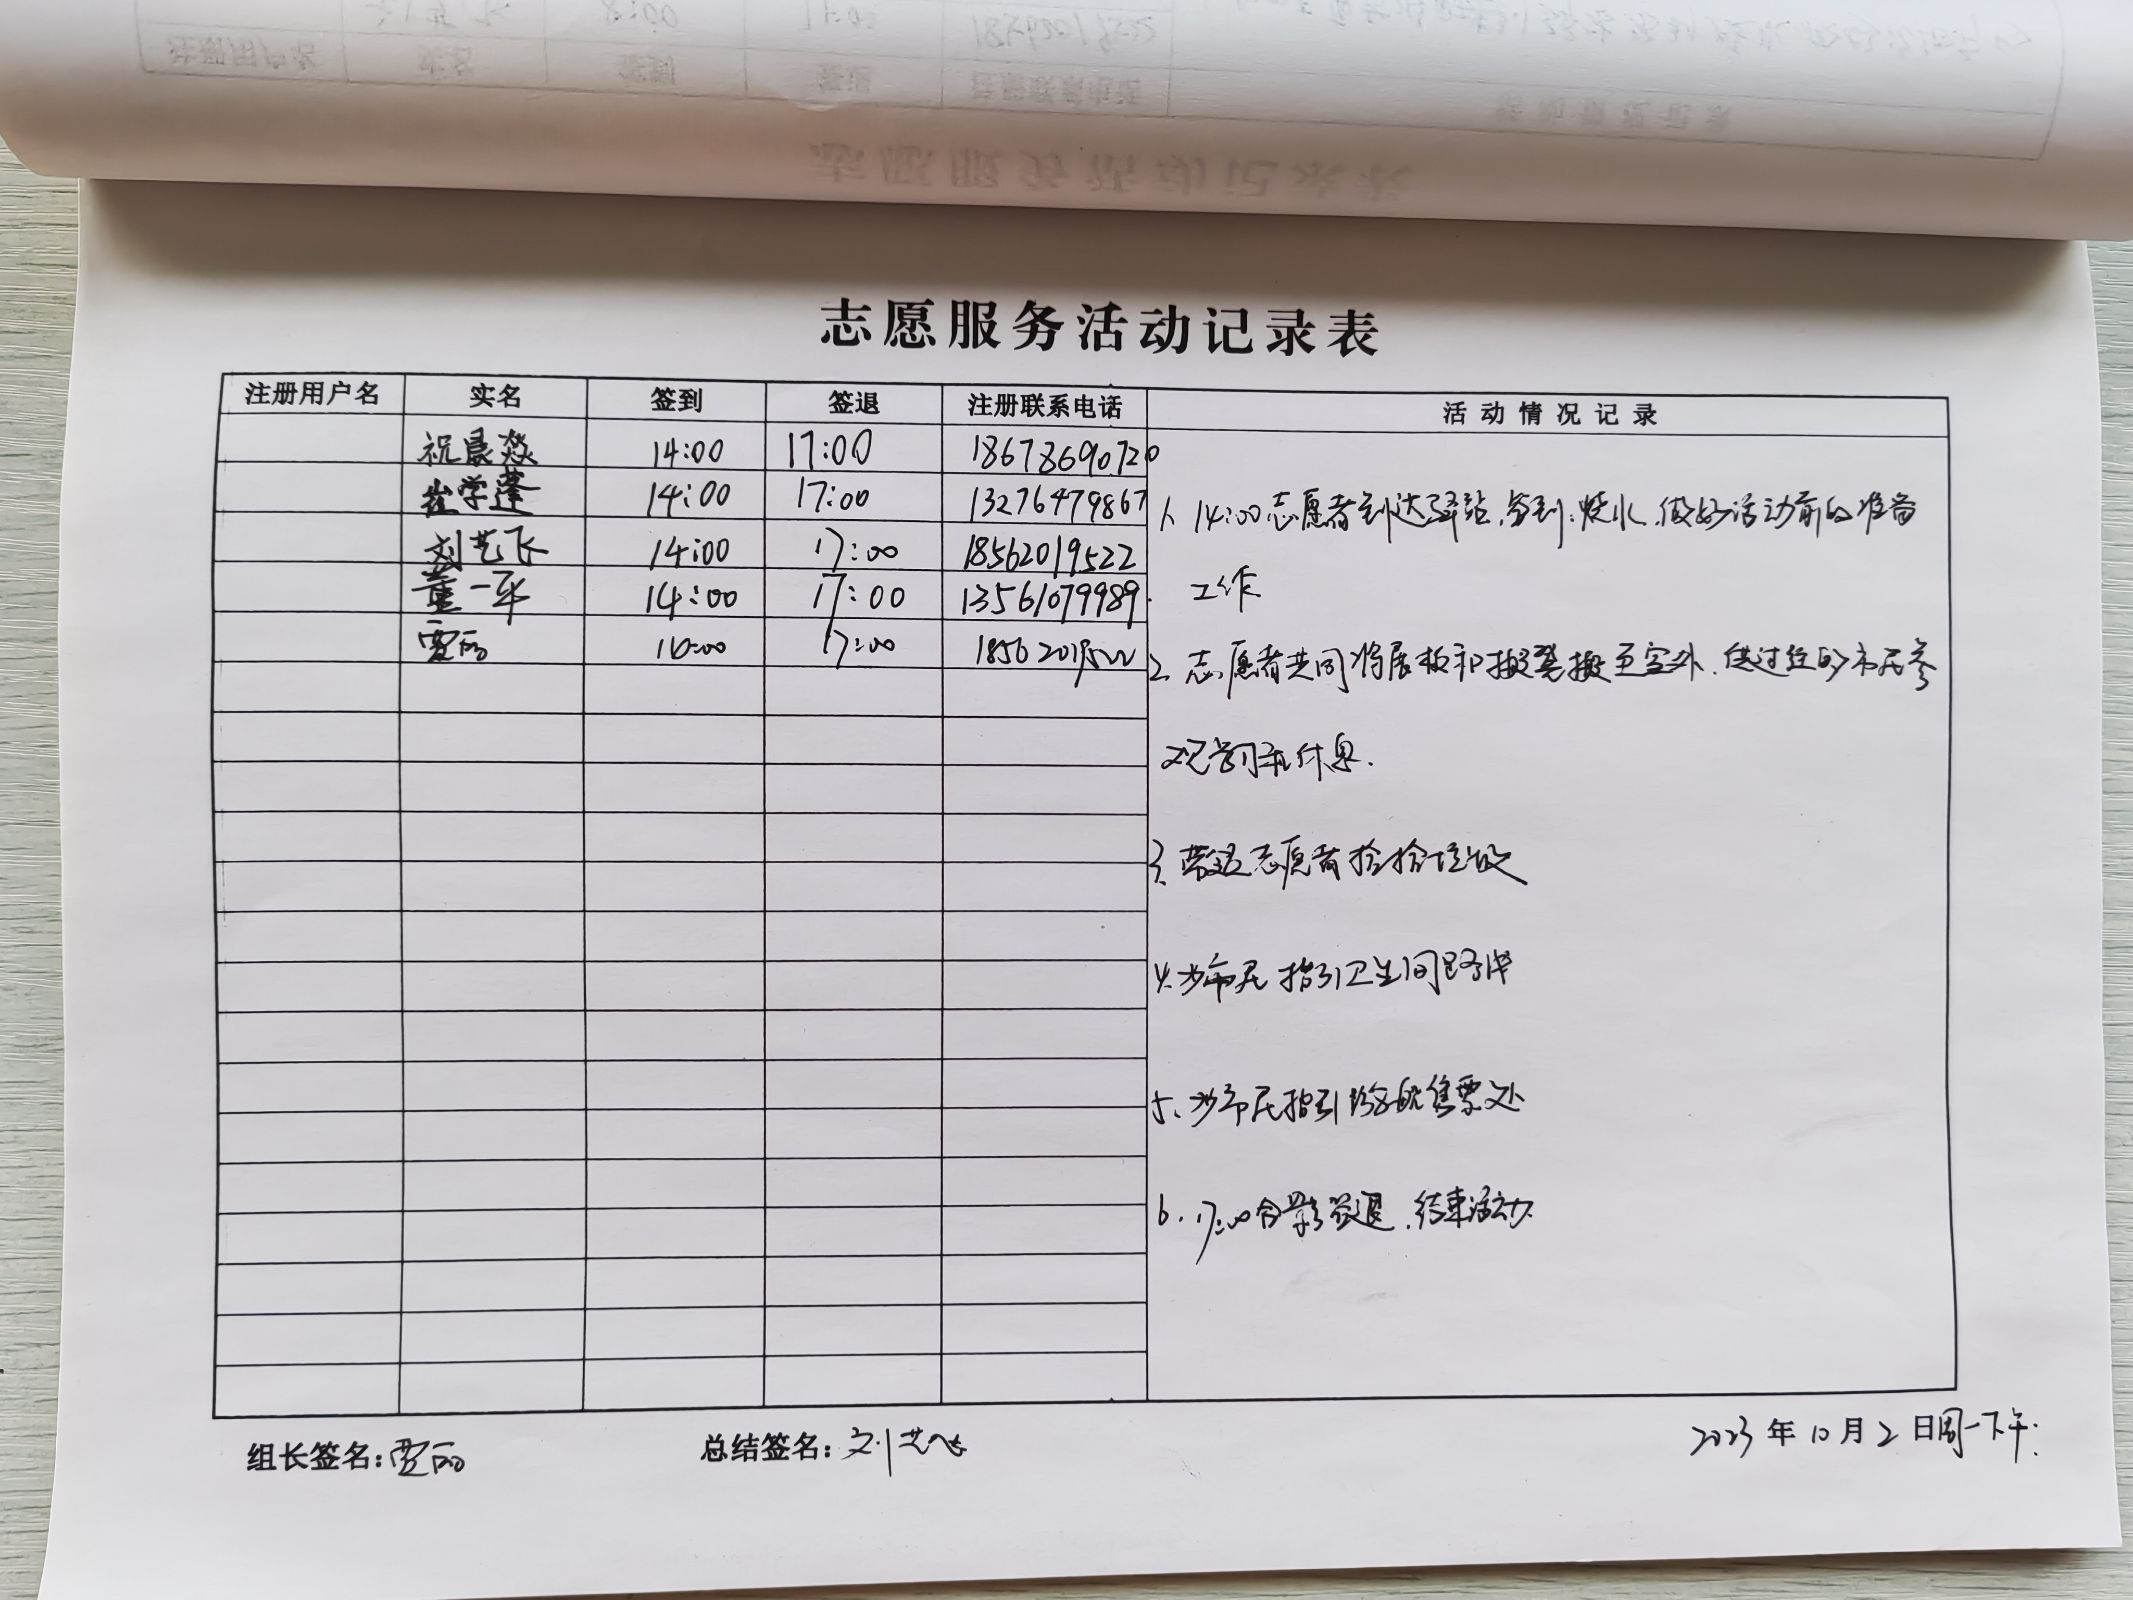 志愿服务活动记录表
注册用户名 实名 签到 签退 注册联系电话 活动情况记录
祝晨燚 14:00 17:00 18678690720
崔学蓬 14:00 17:00 13276479867
刘艺飞 14:00 17:00 18562019522
董一平 14:00 17:00 13561079989
贾丽 17:00
1、14:00志愿者到达驿站,签到,烧水,做好活动前的准备
工作
2、志愿者共同将展板和搬至室外,供过经的市民参
观学习和休息.
3、带过志愿者捡拾垃圾
4、为市民指引卫生间路线
5、为市民指引售票处
6、17:00合影签退,结束活动
组长签名:贾丽 总结签名:刘艺飞 2023年10月2日周一下午.